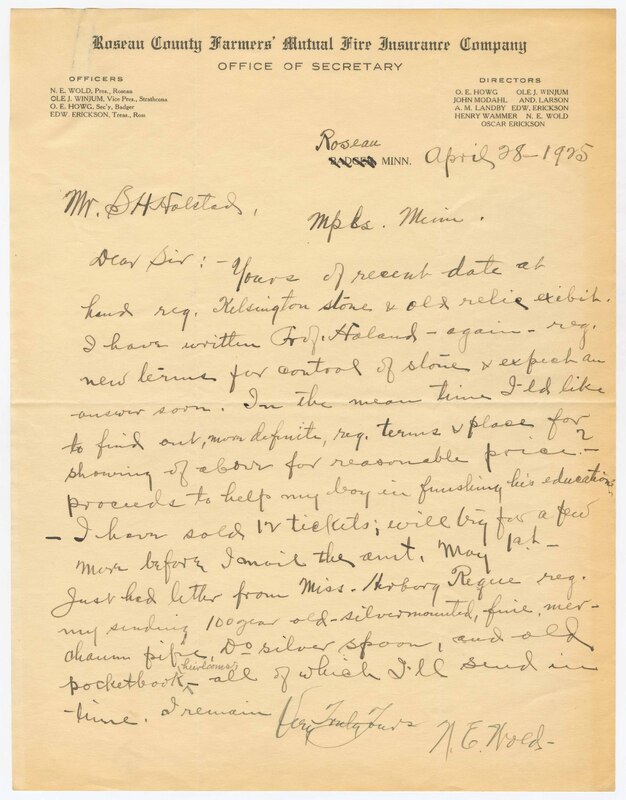 Roseau County Farmers' Mutual Fire Insurance Company
OFFICE OF SECRETARY
OFFICERS
N. E. WOLD, Pres., Roseau
OLE J. WINJUM, Vice Pres., Strathcona
O. E. HOWG, Sec'y, Badger
EDW. ERICKSON, Treas., Ross
DIRECTORS
O. E. HOWG OLE J. WINJUM
JOHN MODAHL AND. LARSON
A. M. LANDBY EDW. ERICKSON
HENRY WAMMER N. E. WOLD
OSCAR ERICKSON
Roseau
BADGER, MINN. April 28-1925
Mr. B H Holstad,
Mpls. Minn.
Dear Sir:- Yours of recent date at
hand reg. Kelsington stone & old relic exibit.
I have written Prof. Holand - again - reg.
new terms for control of stone & expect an
answer soon. In the mean time I'ld like
to find out, more definite, reg. terms & place for
showing of above for reasonable price? -
proceeds to help my boy in finishing his education
- I have sold 12 tickets; will try for a few
more before I mail the amt. May 1st -
Just had letter from Miss. Herborg Reque reg.
my sending 100 year old - silvermounted, fine, mer-
chaum pipe, Do silver spoon, and old
pocketbook - heirlooms - all of which I'll send in
time. I remain Very Truly Yours
N. E. Wold-